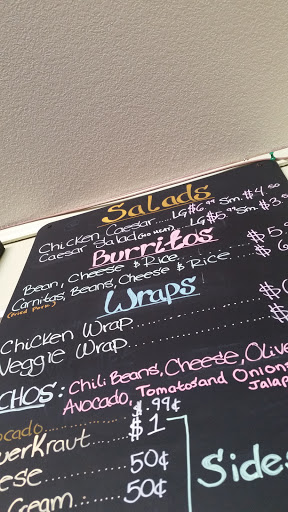 Salads
Chicken Caesar......LG $6.99 Sm. $4.50
Caesar Salad (NO MEAT) LG $5.99 Sm. $3.
Burritos
Bean, Cheese & Rice.......... $5.
Carnitas, Beans, Cheese & Rice.... $
(Fried Pork)
Wraps
Chicken Wrap............ $
Veggie Wrap............ $
CHOS: Chili Beans, Cheese, Olive
Avocado, Tomatos and Onions
Jalap
ocado............$1.99¢
uerKraut....... $1
ese............50¢
Cream........50¢
Sides